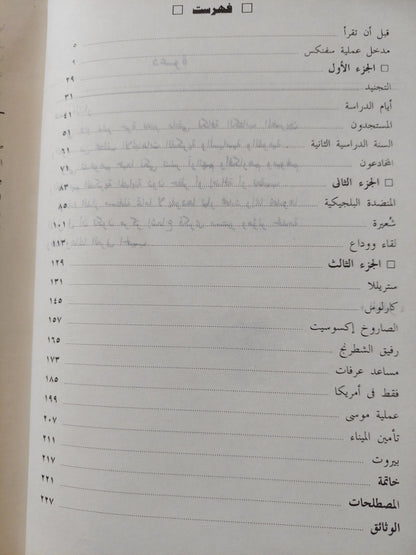 □ فهرست □
قبل أن تقرأ ٥
مدخل عملية سفنكس ٩
□ الجزء الأول ٢٩
التجنيد ٣١
أيام الدراسة ٤١
المستجدون ٥١
السنة الدراسية الثانية ٦١
المخادعون ٧١
□ الجزء الثانى ٨٣
المنضدة البلجيكية ٨٥
شُعيرة ١٠١
لقاء ووداع ١١٣
□ الجزء الثالث ١٢٩
ستريللا ١٣١
كارلوس ١٤٥
الصاروخ إكسوسيت ١٥٧
رفيق الشطرنج ١٦٥
مساعد عرفات ١٧٣
فقط فى أمريكا ١٨٥
عملية موسى ١٩٩
تأمين الميناء ٢٠٧
بيروت ٢١١
خاتمة ٢١٧
المصطلحات ٢٢١
الوثائق ٢٢٧